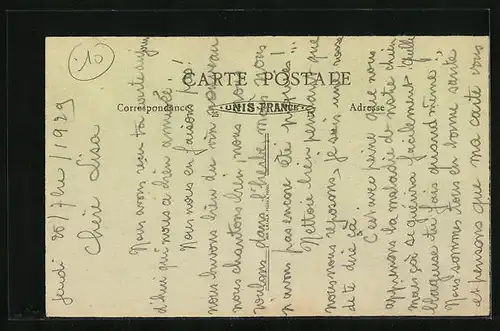 10
CARTE POSTALE
Correspondance
UNIS-FRANCE
Adresse
Jeudi 26/7bre/1929
Chère Lisa
Nous avons reçu ta carte aujour
d'hui qui nous a bien amusée.
Nous nous en faisons pas!
nous buvons bien du vin nouveau
nous chantons bien, nous nous
roulons dans l'herbe mais nous
n'avons pas encore été piquées!!
Nettoie bien pendant que
nous nous reposons, je suis une rosse
de te dire ça.
C'est avec peine que nous
apprenons la maladie de notre chien
mais ça se guérira facilement. Quelle
blagueuse tu fais quand même!
Nous sommes tous en bonne santé
et pensons que ma carte vous